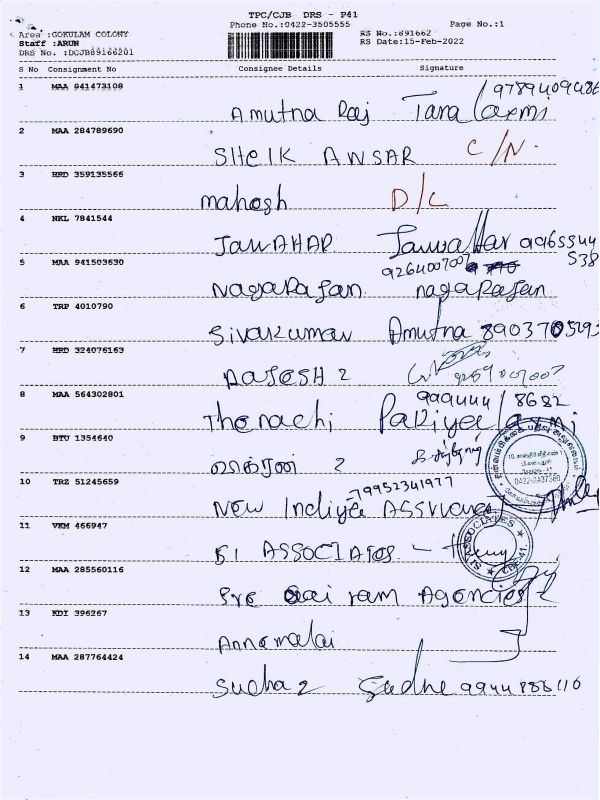 TPC/CJB DRS - P41
Phone No.:0422-3505555 Page No.:1
Area :GOKULAM COLONY RS No.:891662
Staff :ARUN RS Date:15-Feb-2022
DRS No. :DCJB89166201
S No Consignment No Consignee Details Signature
1 MAA 941473108 9789409486
Amutna Raj Tara Laxmi
2 MAA 284789690
SHEIK ANSAR C/N.
3 HRD 359135566
mahesh D/C
4 NKL 7841544
JAWAHAR Jawahar 9965544
538
5 MAA 941503630 9264007007
NagaRajan nagaRajan
6 TRP 4010790
Sivakumar Amutna
7 HRD 324076163
RAJESH 2
8 MAA 564302801 999444/8682
Thenachi
9 BTU 1354640
2
0422-2437580
10 TRZ 51245659 79952341977
New Indiya Assurance
11 VKM 466947
SI ASSOCIATES
SI ASSOCIATES
CBE-41
12 MAA 285560116
Sre Sai ram Agencies
13 KDI 396267
Annamalai
14 MAA 287764424
Sudha 2 Sudhe 9944886116